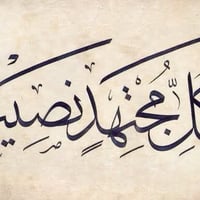 كلِّ مُجْتَهِدٍ نَصِيـ